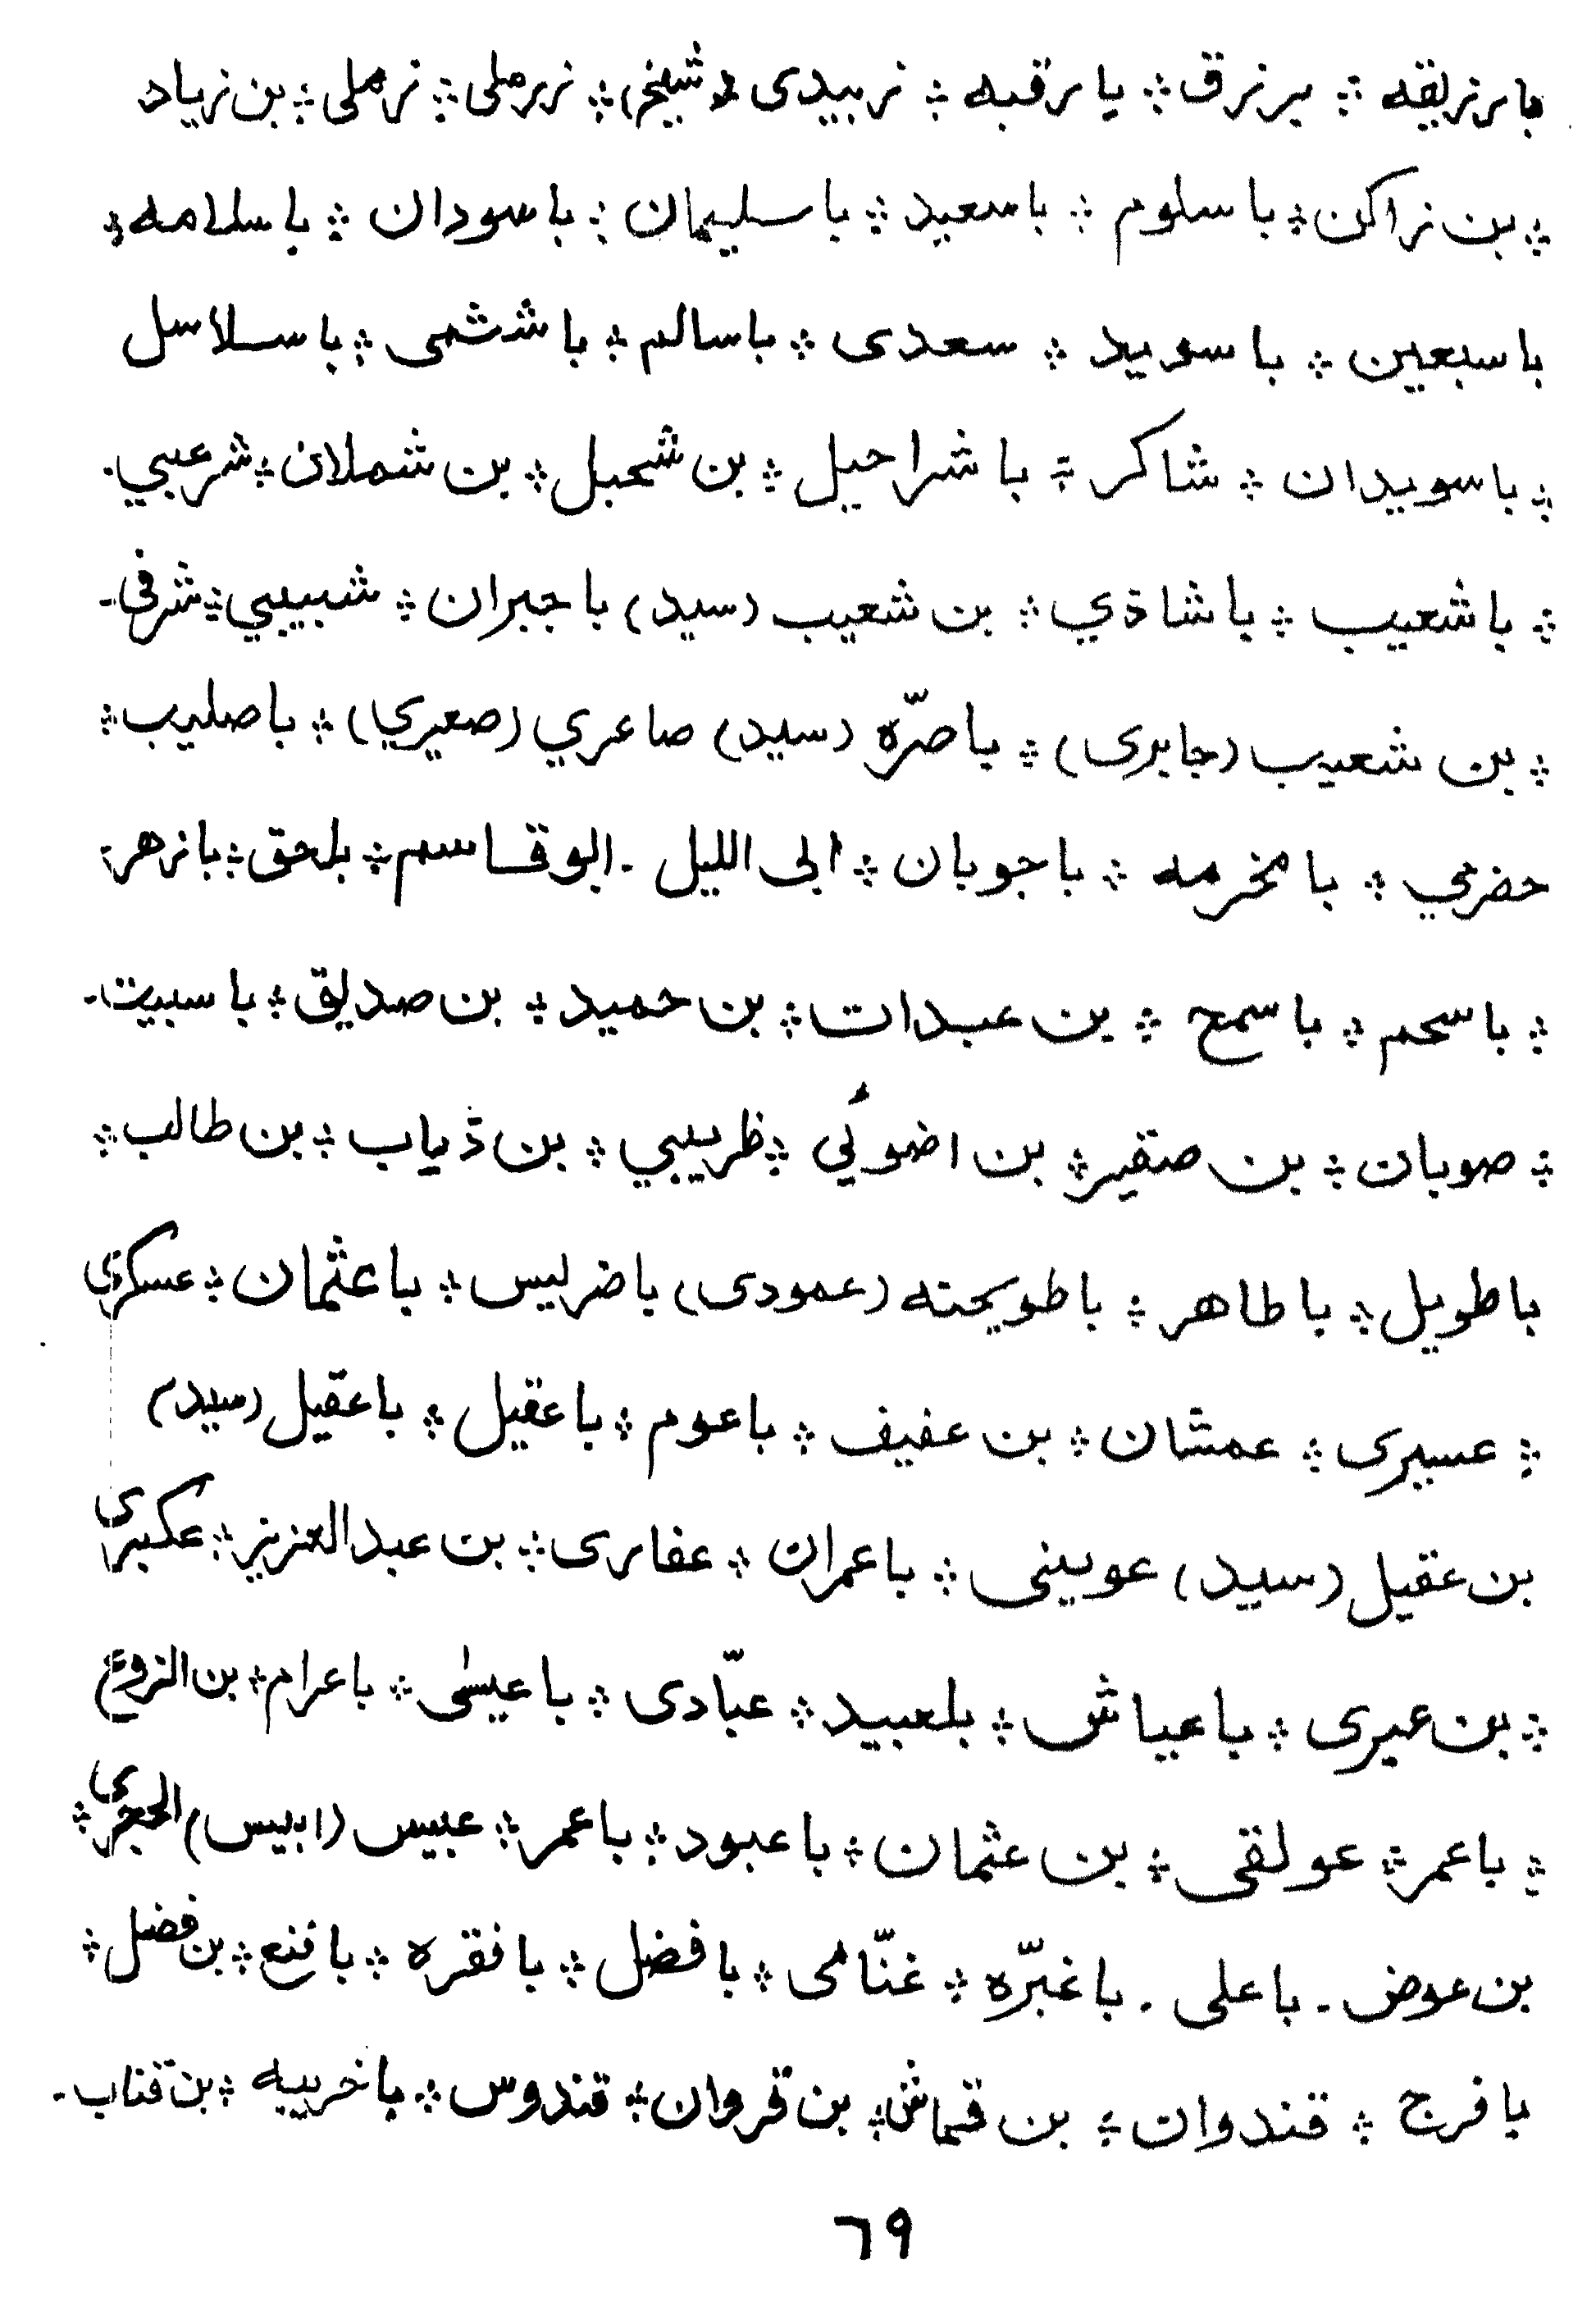 بارزيقه ؞ برزق ؞ بارقبه ؞ زبيدى (شيخ) ؞ زبرملى ؞ زملى ؞ بن زياد
؞ بن زاكن ؞ باسلوم ؞ باسعيد ؞ باسليمان ؞ باسودان ؞ باسلامه ؞
باسبعين ؞ باسويد ؞ سعدى ؞ باسالم ؞ باششمى ؞ باسلاسل
؞ باسويدان ؞ شاكر ؞ باشراحيل ؞ بن شحبل ؞ بن شملان ؞ شرعبي ۔
؞ باشعيب ؞ باشاذي ؞ بن شعيب (سيد) باجبران ؞ شبيبي ؞ شرفى ۔
؞ بن شعيب (جابرى) ؞ باصرّه (سيد) صاعري (صعيري) ؞ باصليب ؞
حضرمي ؞ بامخرمه ؞ باجوبان ؞ ابى الليل ۔ ابوقاسم ؞ بلحق ؞ بازهر ؞
؞ باسحم ؞ باسمح ؞ بن عبدات ؞ بن حميد ؞ بن صديق ؞ باسبيت ۔
؞ صوبان ؞ بن صقير ؞ بن اضوئي ؞ ظريبي ؞ بن ذياب ؞ بن طالب ؞
باطويل ؞ باطاهر ؞ باطويحته (عمودى) باضريس ؞ باعثمان ؞ عسكري
؞ عسيرى ؞ عمشان ؞ بن عفيف ؞ باعوم ؞ باعقيل ؞ باعقيل (سيد)
بن عقيل (سيد) عوينى ؞ باعمران ؞ عفارى ؞ بن عبدالعزيز ؞ عكبرى
؞ بن عيرى ؞ باعياش ؞ بلعبيد ؞ عبّادى ؞ باعيسٰى ؞ باعرام ؞ بن الزوع
؞ باعمر ؞ عولقى ؞ بن عثمان ؞ باعبود ؞ باعمر ؞ عبيس (ابيس) الحجرى ؞
بن عوض ۔ باعلى ۔ باغبرّه ؞ غنّامى ؞ بافضل ؞ بافقره ؞ بافنع ؞ بن فضل ؞
بافرج ؞ قندوان ؞ بن قماش ؞ بن قروان ؞ قندوس ؞ باخريبه ؞ بن قناب ۔
٦٩